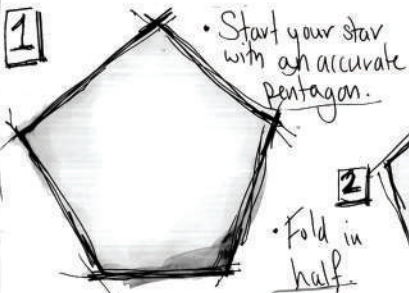 1
• Start your star
with an accurate
pentagon.
2
• Fold in
half.